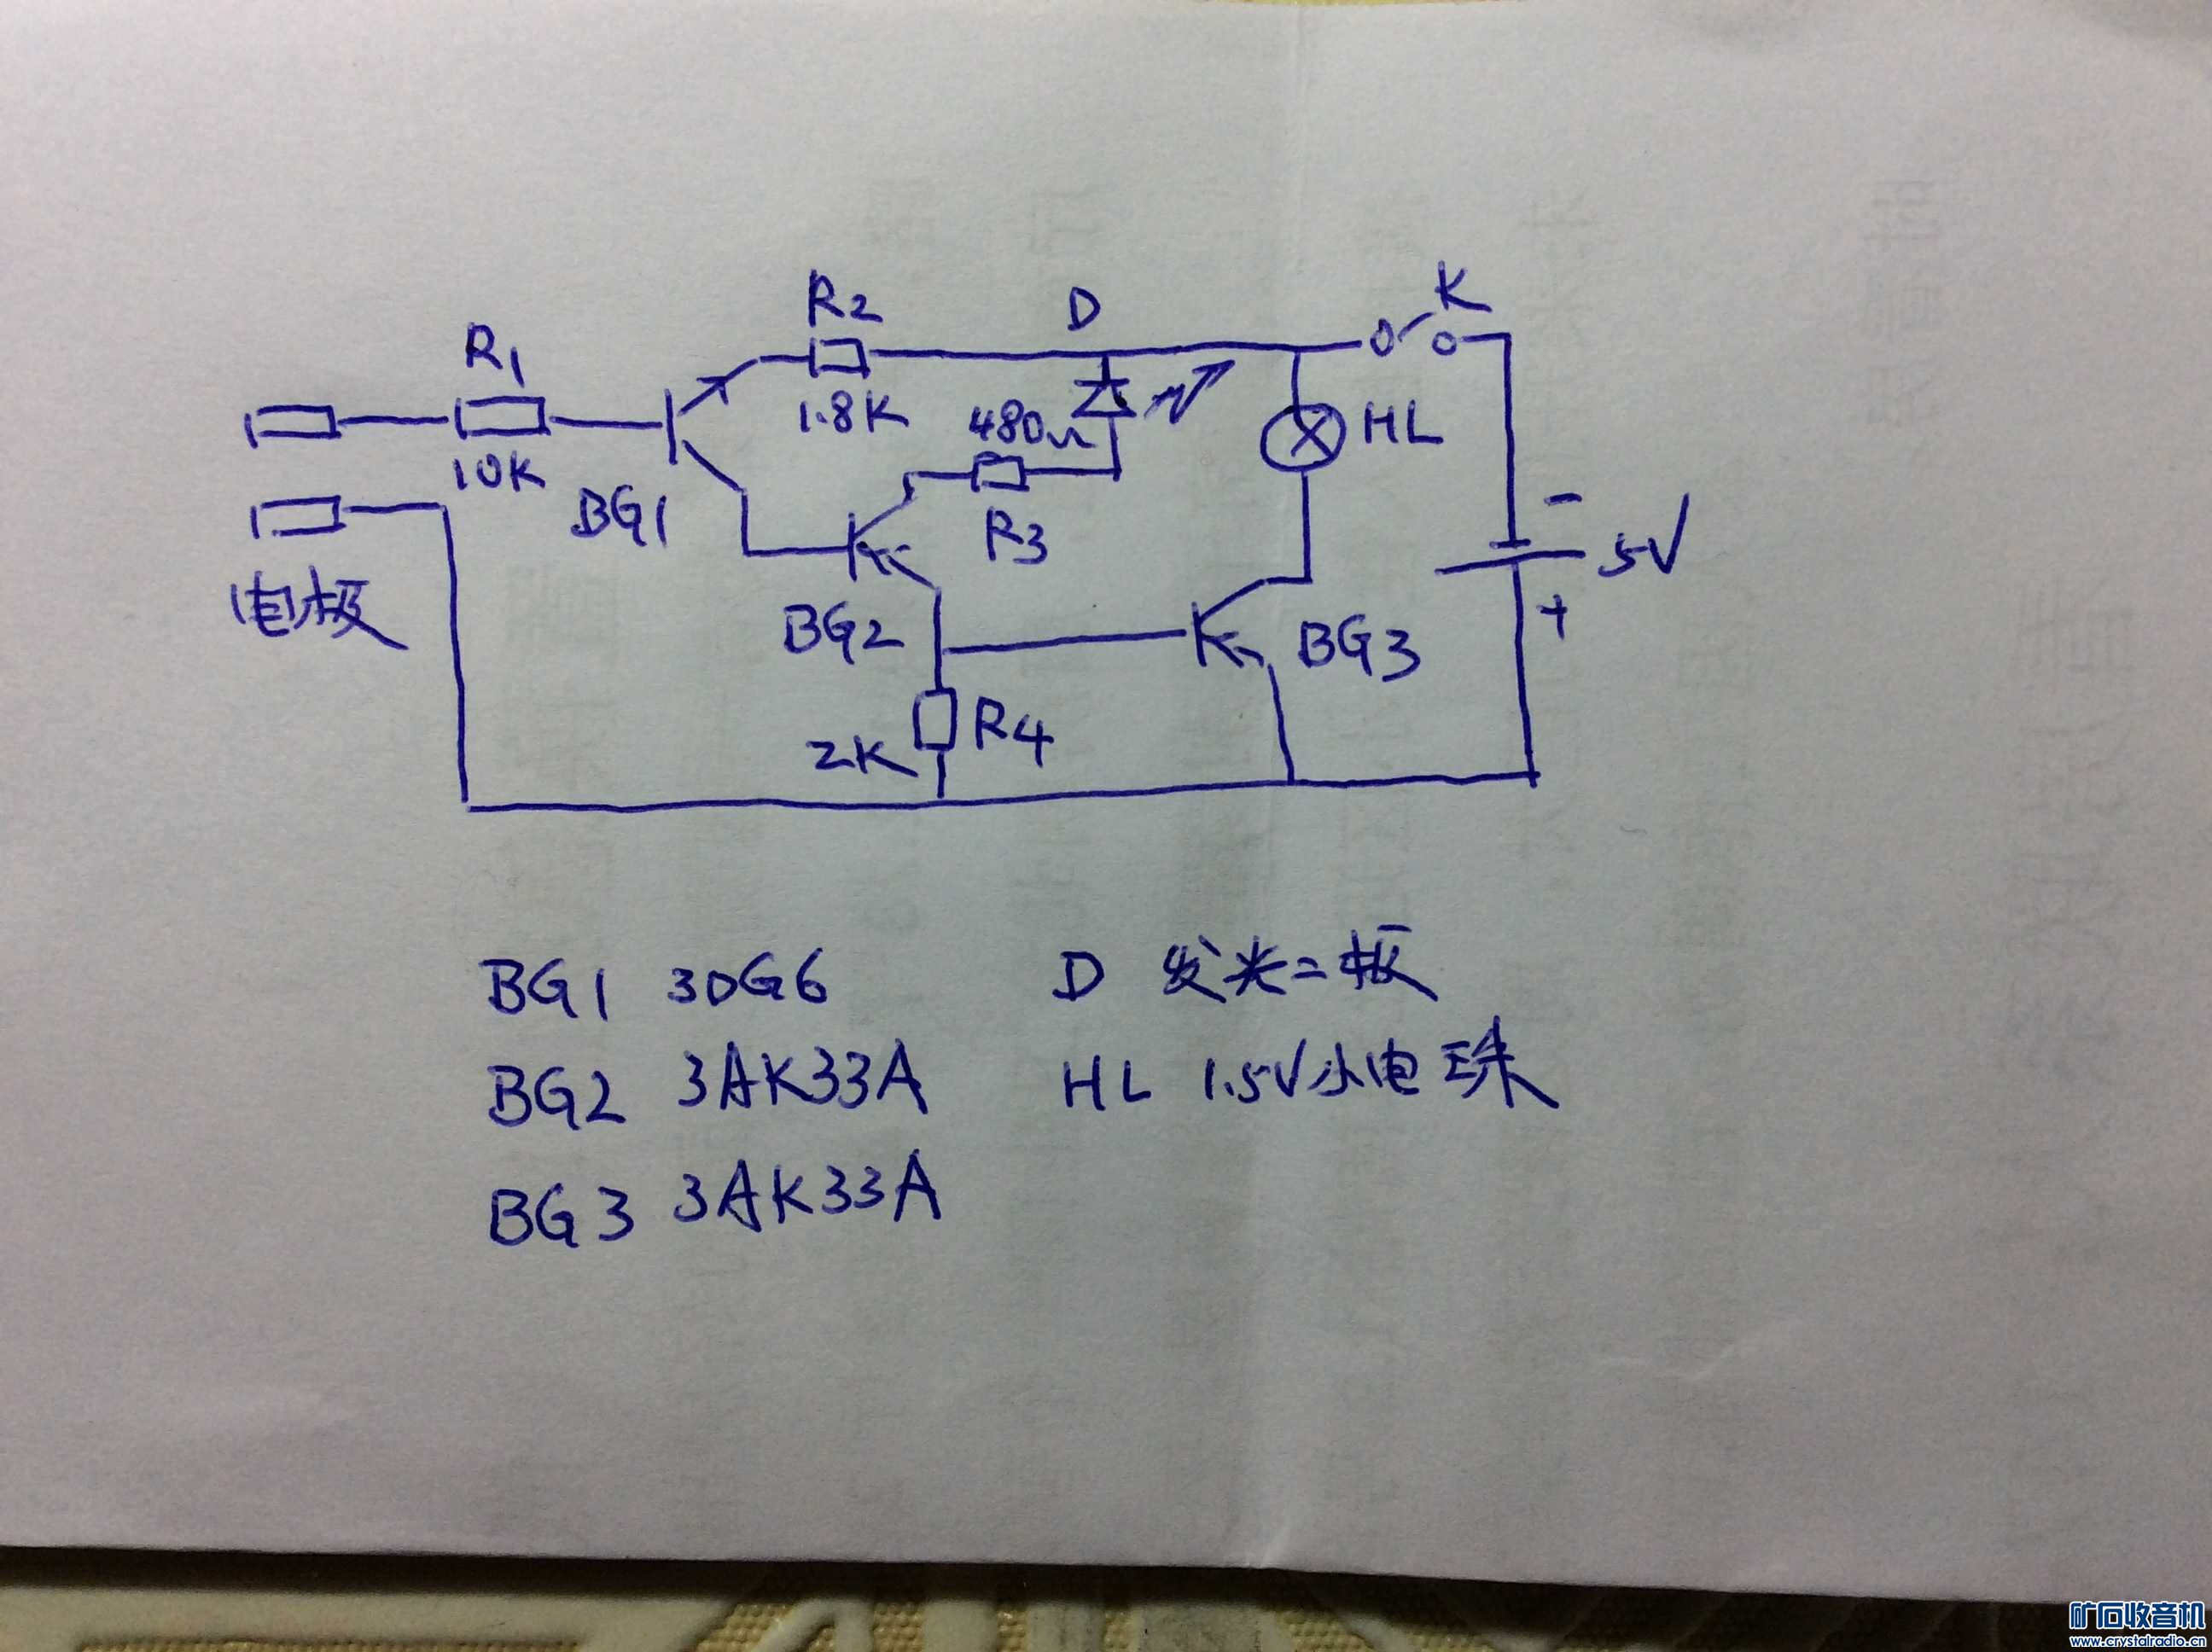 R2
D
K
R1
1.8K
480Ω
HL
10K
BG1
R3
-
5V
+
电极
BG2
BG3
R4
2K
BG1 3DG6
D 发光二极
BG2 3AK33A
HL 1.5V小电珠
BG3 3AK33A
矿石收音机
www.crystalradio.cn